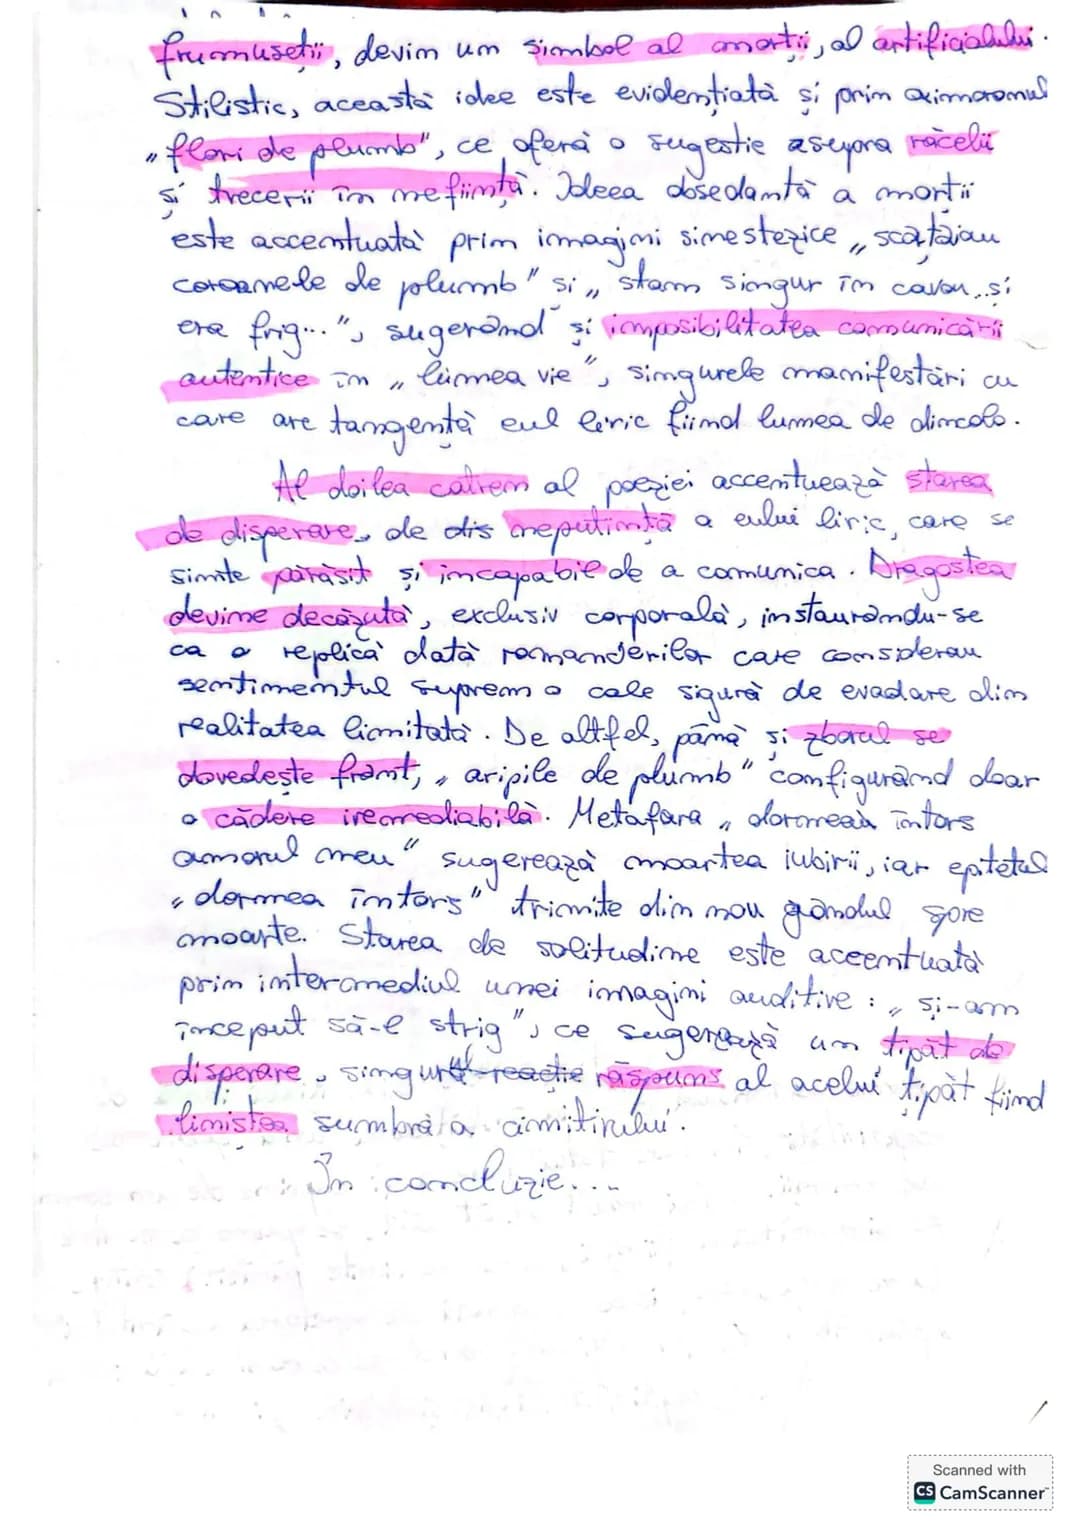 frumuseții, devin un simbol al morții, al artificialului.
Stilistic, această idee este evidențiată și prin oximoronul
„flori de plumb", ce oferă o sugestie asupra răcelii
și trecerii în neființă. Ideea obsedantă a morții
este accentuată prin imagini sinestezice „scârțâiau
coroanele de plumb" și „stam singur în cavou.. și
era frig...", sugerând și imposibilitatea comunicării
autentice în „lumea vie", singurele manifestări cu
care are tangență eul liric fiind lumea de dincolo.
Al doilea catren al poeziei accentuează starea
de disperare, de dis neputință a eului liric, care se
simte părăsit și incapabil de a comunica. Dragostea
devine decăzută, exclusiv corporală, instaurându-se
ca o replică dată romanderilor care considerau
sentimentul suprem o cale sigură de evadare din
realitatea limitată. De altfel, până și zborul se
dovedește frânt, „aripile de plumb" configurând doar
o cădere iremediabilă. Metafora „dormea întors
amorul meu" sugerează moartea iubirii, iar epitetul
„dormea întors" trimite din nou gândul spre
moarte. Starea de solitudine este accentuată
prin intermediul unei imagini auditive: „și-am
început să-l strig", ce sugerează un țipăt de
disperare, singurul reacție răspuns al acelui țipăt fiind
liniștea sumbră a cimitirului.
În concluzie...
Scanned with
CS CamScanner